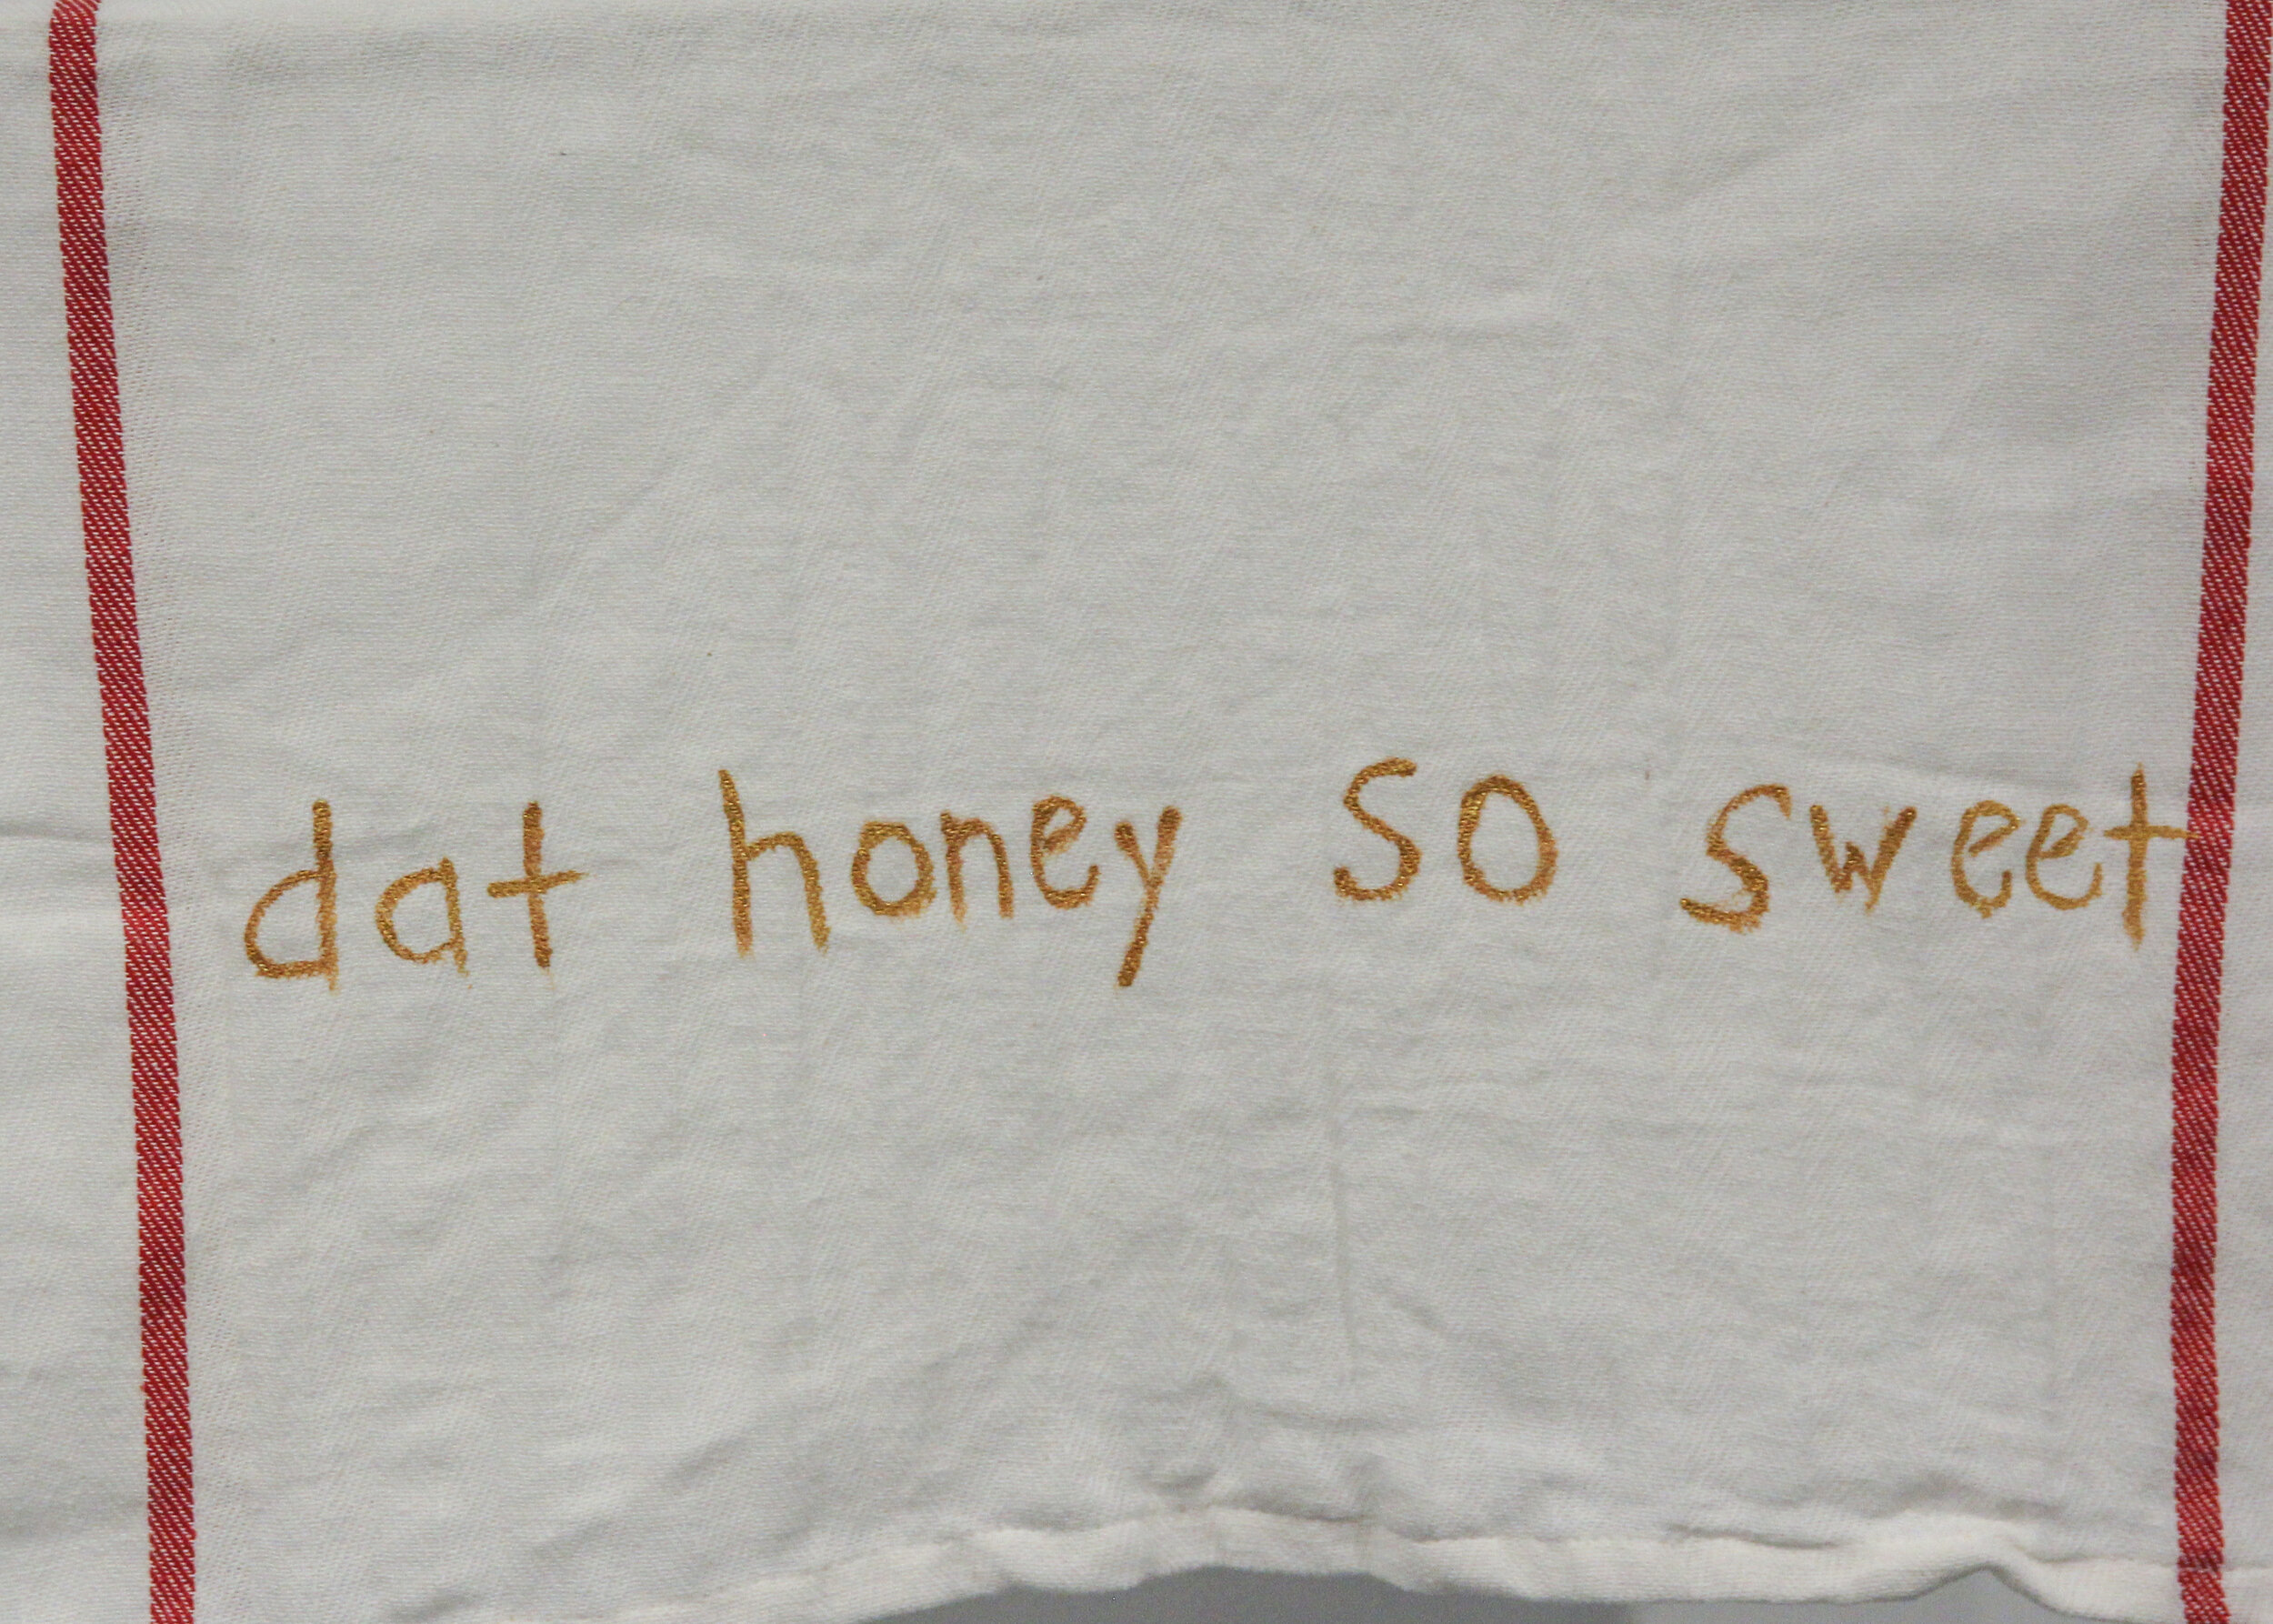 dat honey so sweet